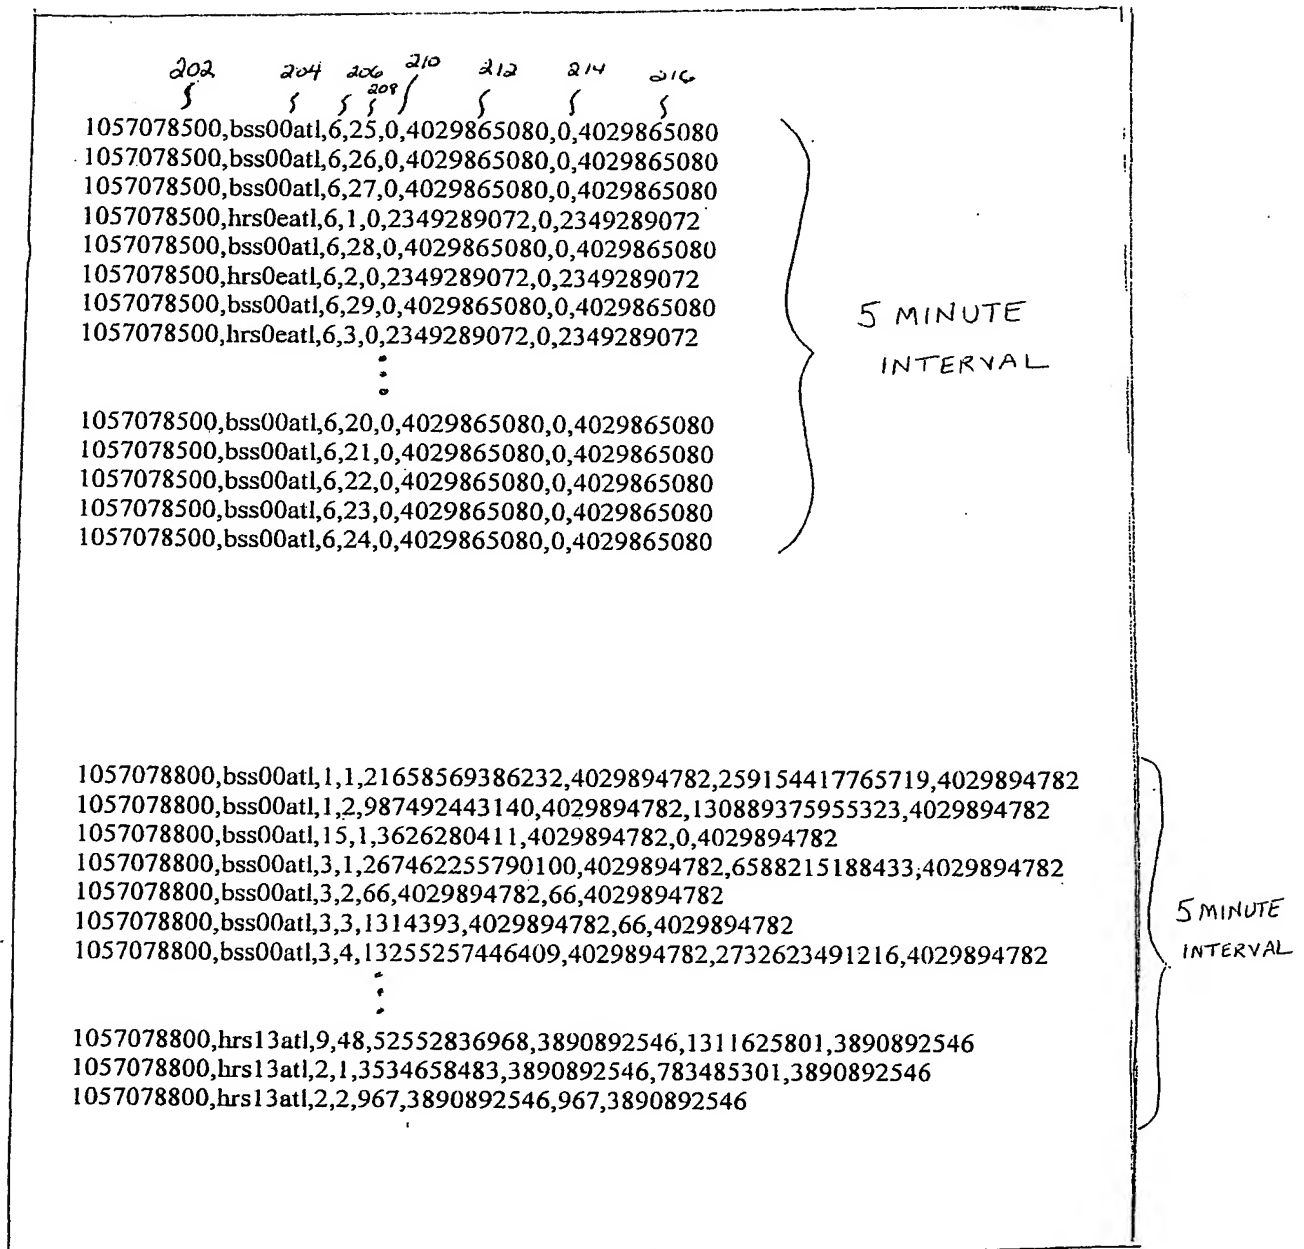 202 204 206 208 210 212 214 216
1057078500,bss00atl,6,25,0,4029865080,0,4029865080
1057078500,bss00atl,6,26,0,4029865080,0,4029865080
1057078500,bss00atl,6,27,0,4029865080,0,4029865080
1057078500,hrs0eatl,6,1,0,2349289072,0,2349289072
1057078500,bss00atl,6,28,0,4029865080,0,4029865080
1057078500,hrs0eatl,6,2,0,2349289072,0,2349289072
1057078500,bss00atl,6,29,0,4029865080,0,4029865080
1057078500,hrs0eatl,6,3,0,2349289072,0,2349289072
5 MINUTE
INTERVAL
1057078500,bss00atl,6,20,0,4029865080,0,4029865080
1057078500,bss00atl,6,21,0,4029865080,0,4029865080
1057078500,bss00atl,6,22,0,4029865080,0,4029865080
1057078500,bss00atl,6,23,0,4029865080,0,4029865080
1057078500,bss00atl,6,24,0,4029865080,0,4029865080
1057078800,bss00atl,1,1,21658569386232,4029894782,259154417765719,4029894782
1057078800,bss00atl,1,2,987492443140,4029894782,130889375955323,4029894782
1057078800,bss00atl,15,1,3626280411,4029894782,0,4029894782
1057078800,bss00atl,3,1,267462255790100,4029894782,6588215188433,4029894782
1057078800,bss00atl,3,2,66,4029894782,66,4029894782
1057078800,bss00atl,3,3,1314393,4029894782,66,4029894782
1057078800,bss00atl,3,4,13255257446409,4029894782,2732623491216,4029894782
5 MINUTE
INTERVAL
1057078800,hrs13atl,9,48,52552836968,3890892546,1311625801,3890892546
1057078800,hrs13atl,2,1,3534658483,3890892546,783485301,3890892546
1057078800,hrs13atl,2,2,967,3890892546,967,3890892546